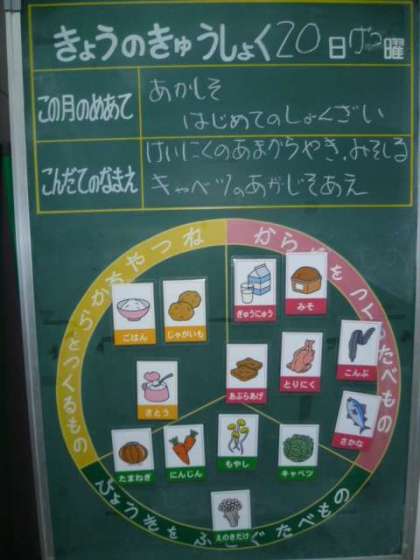 きょうのきゅうしょく 20日 げつ曜
この月のめあて
あかしそ
はじめてのしょくざい
こんだてのなまえ
けいにくのあまからやき、みそしる
キャベツのあかじそあえ
ねつやちからをつくるもの
からだをつくるたべもの
ぎゅうにゅう
みそ
ごはん
じゃがいも
こんぶ
あぶらあげ
とりにく
さとう
さかな
たまねぎ
にんじん
もやし
キャベツ
えのきだけ
びょうきをふせぐたべもの